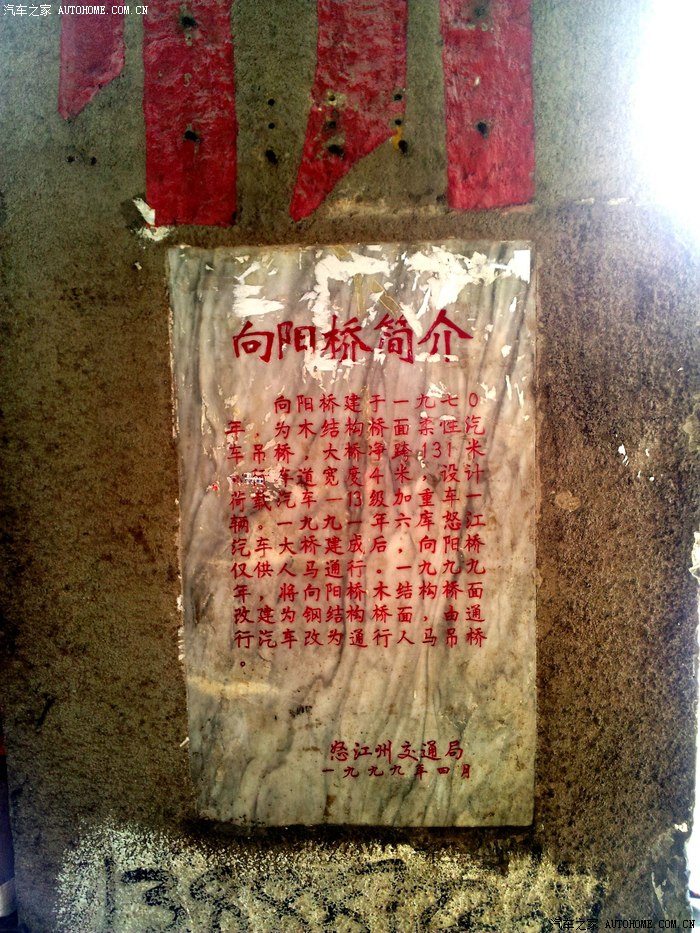 汽车之家 AUTOHOME.COM.CN
向阳桥简介
向阳桥建于一九七0
年，为木结构桥面柔性汽
车吊桥，大桥净跨131米
，行车道宽度4米，设计
荷载汽车一13级加重车一
辆。一九九一年六库怒江
汽车大桥建成后，向阳桥
仅供人马通行。一九九九
年，将向阳桥木结构桥面
改建为钢结构桥面，由通
行汽车改为通行人马吊桥
。
怒江州交通局
一九九九年四月
汽车之家 AUTOHOME.COM.CN